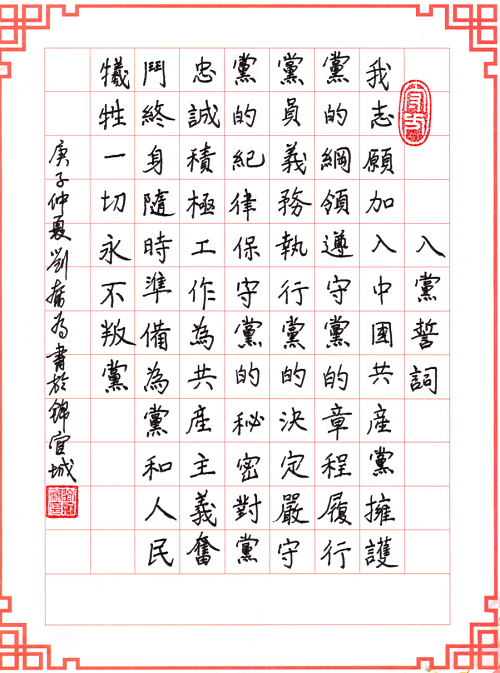 入黨誓詞
我志願加入中國共産黨擁護
黨的綱領遵守黨的章程履行
黨員義務執行黨的決定嚴守
黨的紀律保守黨的秘密對黨
忠誠積極工作為共産主義奮
鬥終身隨時準備為黨和人民
犧牲一切永不叛黨
庚子仲夏劉為書於錦官城